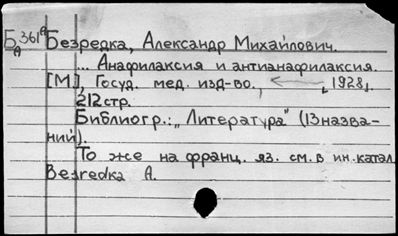 Б 361а Безредка, Александр Михайлович.
А
... Анафилаксия и антианафилаксия.
[М], Госуд. мед. изд-во. , 1928,
212стр.
Библиогр.: „Литература" (13назва-
ний).
То же на франц. яз. см. в ин. катал.
Besredka A.